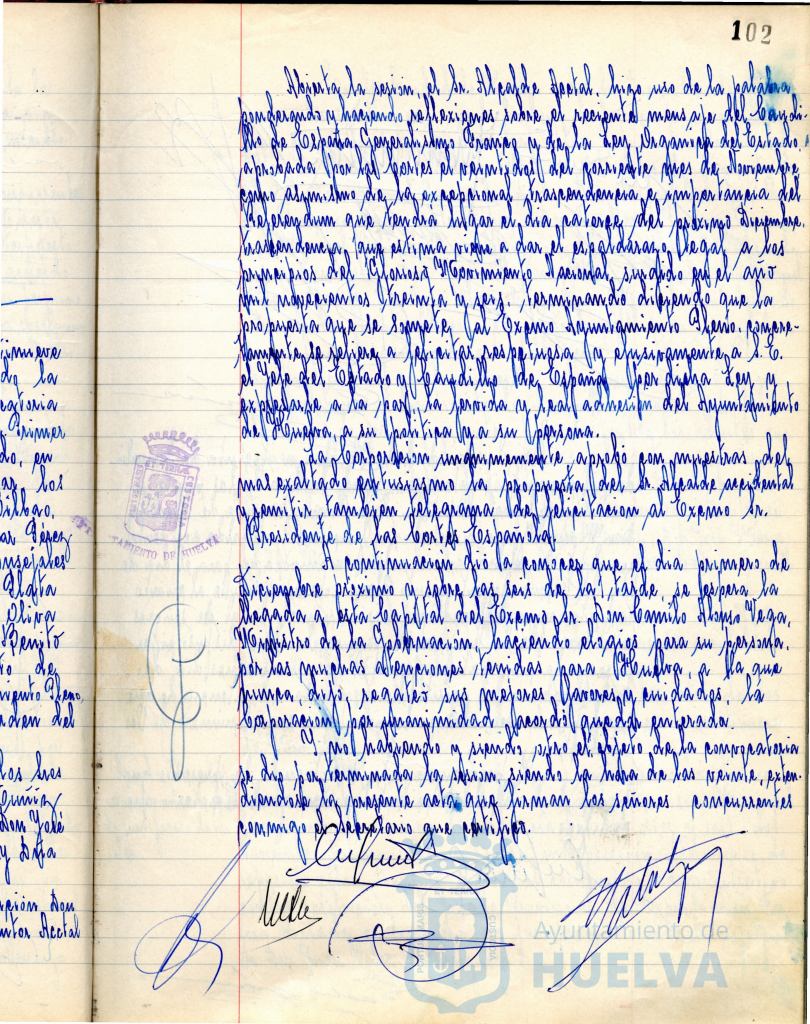 102
Abierta la sesión, el Sr. Alcalde Acctal. hizo uso de la palabra
ponderando y haciendo reflexiones sobre el reciente mensaje del Caudi-
llo de España Generalísimo Franco y de la Ley Organica del Estado,
aprobada por las Cortes el veintidos del corriente mes de Noviembre
como asimismo de la excepcional trascendencia e importancia del
Referendum que tendrá lugar el dia catorce del próximo Diciembre,
trascendencia, que estima viene a dar el espaldarazo legal a los
principios del Glorioso Movimiento Nacional, surgido en el año
mil novecientos treinta y seis, terminando diciendo que la
propuesta que se somete al Excmo Ayuntamiento Pleno, concre-
tamente se refiere a felicitar respetuosa y efusivamente a S.E.
el Jefe del Estado y Caudillo de España por dicha Ley y
expresarse a la par, la fervida y leal adhesión del Ayuntamiento
de Huelva, a su política y a su persona.
La Corporación unanimemente aprobó con muestras del
mas exaltado entusiasmo la propuesta del Sr. Alcalde accidental
y remitir tambien telegrama de felicitacion al Excmo Sr.
Presidente de las Cortes Española.
A continuación dió a conocer que el dia primero de
Diciembre próximo y sobre las seis de la tarde, se espera la
llegada a esta Capital del Excmo Sr. Don Camilo Alonso Vega,
Ministro de la Gobernación, haciendo elogios para su persona,
por las muchas atenciones tenidas para Huelva, a la que
nunca, dijo, regateó sus mejores favores y cuidados, la
Corporacion por unanimidad acordó quedar enterada.
Y no habiendo y siendo otro el objeto de la convocatoria
se dio por terminada la sesion, siendo la hora de las veinte, exten-
diendose la presente acta que firman los señores concurrentes
conmigo el Secretario que certifico.
TAMIENTO DE HUELVA
nueve
la
Primer
do, en
los
Bilbao,
Pérez
Plata
Oliva
Benito
de
Pleno
del
los
Muñiz
Don José
y
Don
Acctal
Ayuntamiento de
HUELVA